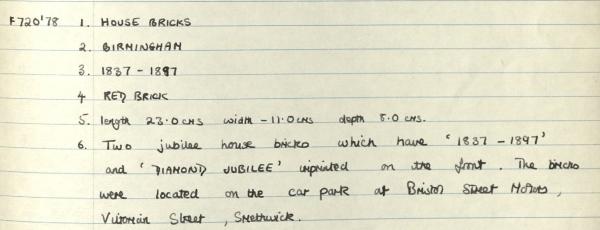 F720'78 1. HOUSE BRICKS
2. BIRMINGHAM
3. 1837 - 1897
4 RED BRICK
5. length 23.0 cms width - 11.0 cms depth 8.0 cms.
6. Two jubilee house bricks which have '1837 - 1897'
and 'DIAMOND JUBILEE' inprinted on the front. The bricks
were located on the car park at Bristol Street Motors,
Victoria Street, Smethwick.